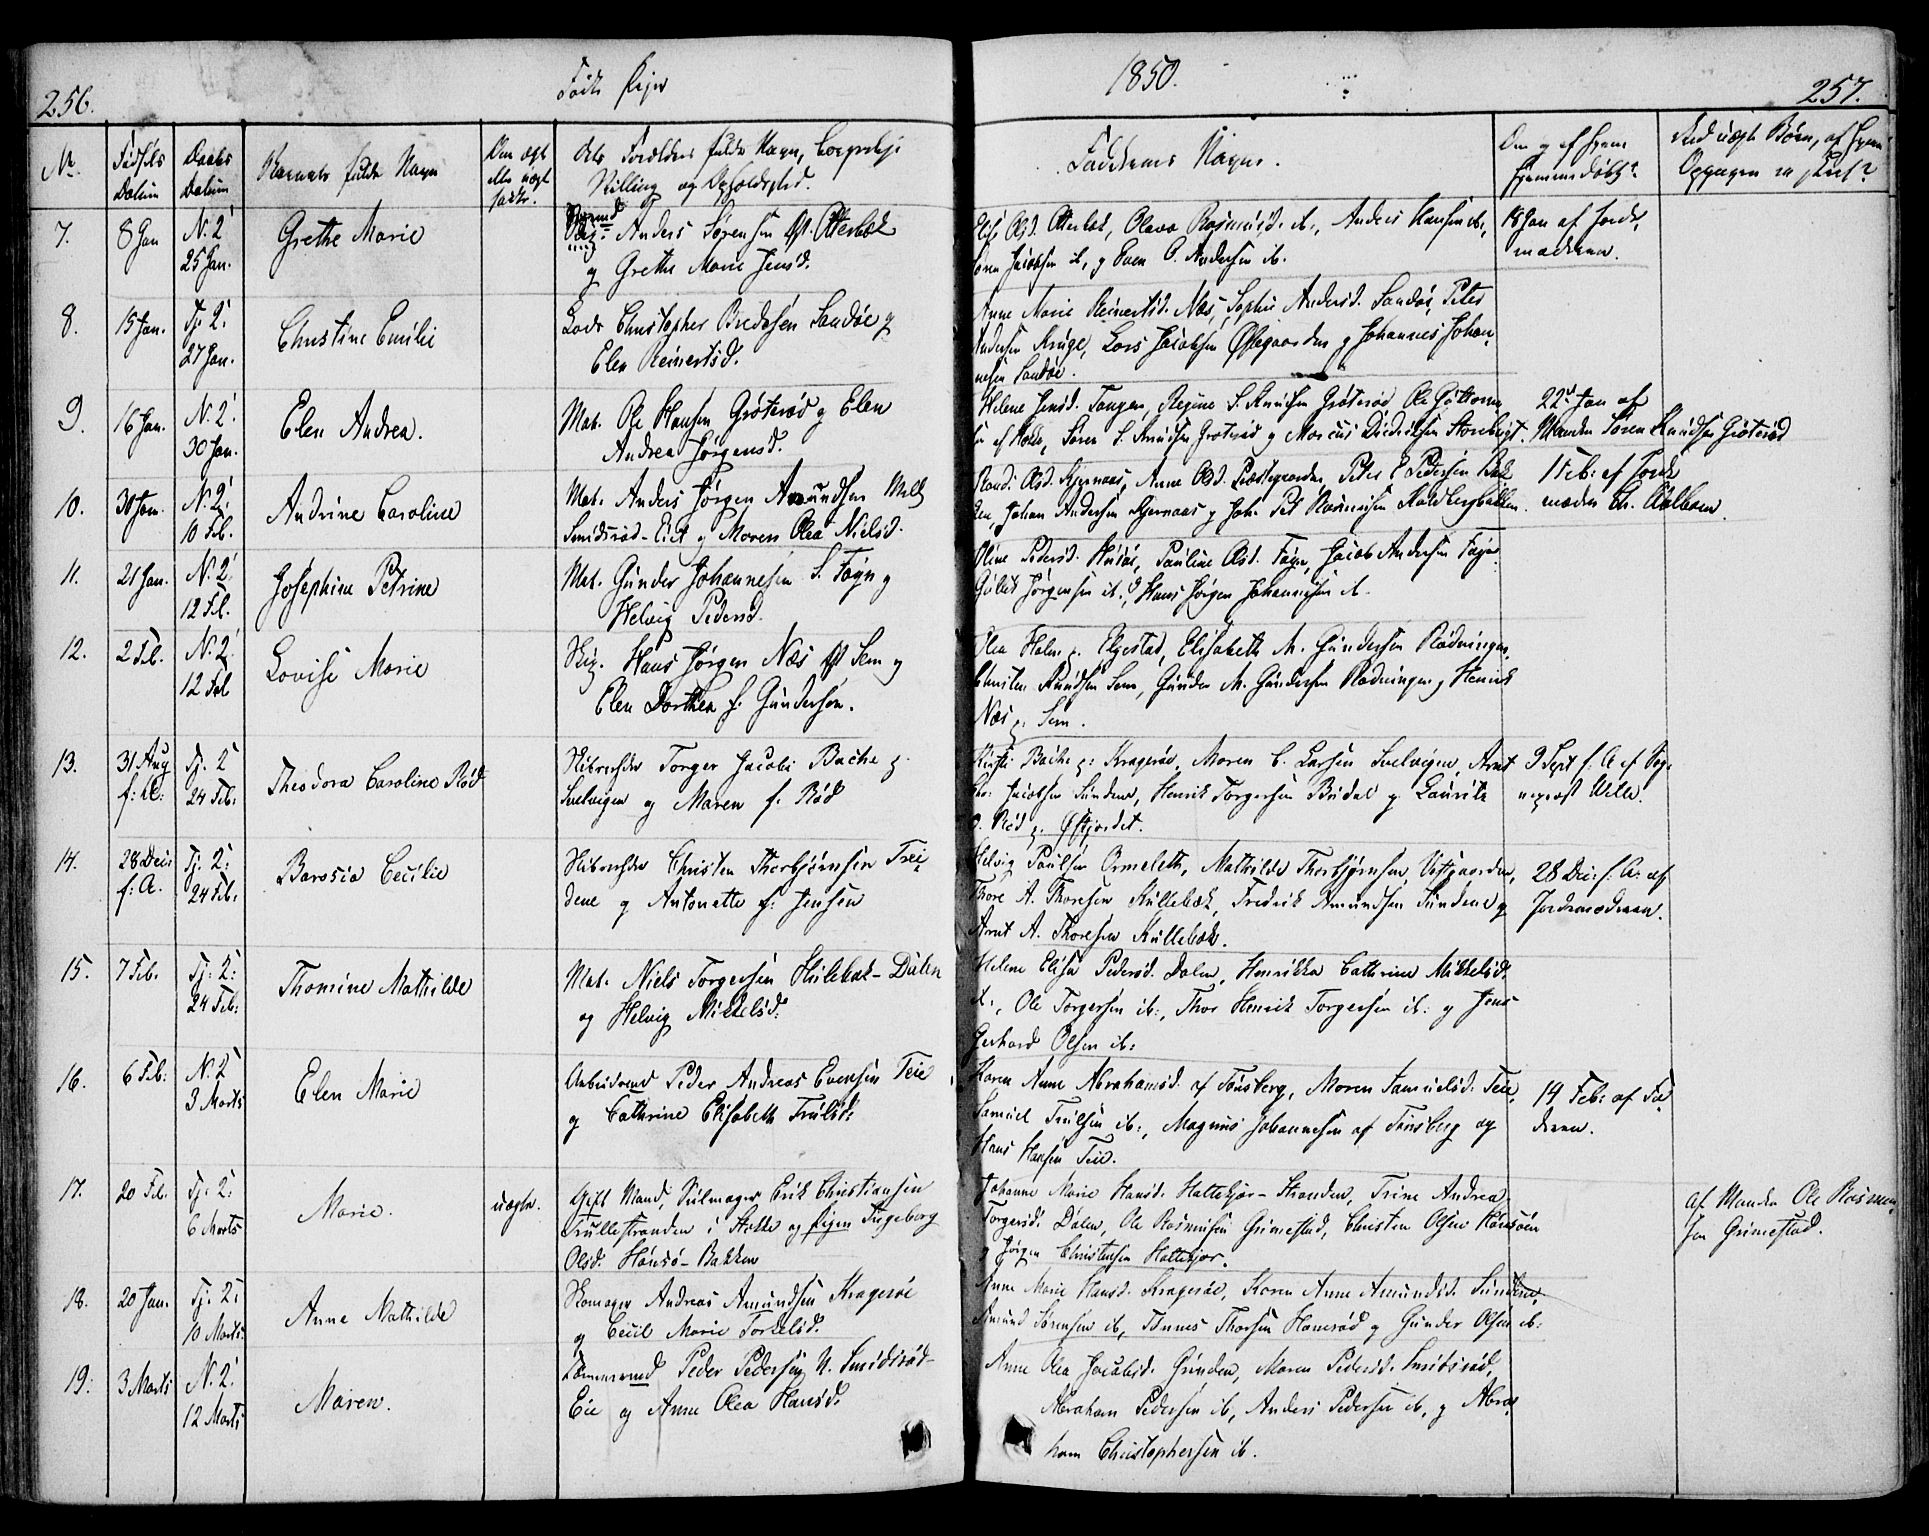 256.
Født Piger
1850.
257.
No.
Fødsels Datum
Daabs Datum
Barnets fulde Navn
Om ægte eller uægte født.
Dets Forældres fulde Navn, Borgerlige
Stilling og Opholdssted.
Faddernes Navne.
Om og af hvem hjemmedøbt?
Ved uægte Børn, af hvem Opgagen
7.
8 Jan
N. 2
25 Jan.
Grethe Marie
Anders Sørensen Otterbek
og Grethe Marie Jensd.
Olsd. Otterbek, Olava Rasmusd. ib., Anders Hansen ib.,
Søren Jacobsen ib, og Sven O. Andersen ib.
18 Jan af Jorde,
moderen.
8.
15 Jan.
Tj. 2:
27 Jan.
Christine Emilie
Lods Christopher Bredesen Sandøe og
Elen Reinertsd.
Anne Marie Reinertsd. Næs, Sophie Andersd. Sandøe, Peter
Andersen Kruge, Lars Jacobsen Østegaarden og Johannes Johan,
nesen Sandøe.
9.
16 Jan.
N. 2!
30 Jan.
Elen Andrea.
Mat. Ole Hansen Grøterød og Elen
Andrea Jørgensd.
Helene Jensd. Tangen, Regine S. Knudsen Grøterød Ole Guttorm,
sen Søren S. Knudsen Grøterød og Marcus Diedriksen
22d Jan af
Manden Søren Knudsen Grøterød
10.
30 Jan.
N. 2!
10 Feb.
Andrine Caroline
Mat. Anders Jørgen Amundsen Mell
Smidsrød-Eiet og Maren Olea Nielsd.
Randi Olsd. Gjernaas, Anne Olsd. Præstegaarden, Peter E Pedersen Bak
ken, Johan Andersen Gjernaas og Joh. Pet Rasmussen
1 Feb: af Jorde
moder Ch. Aalborn.
11.
21 Jan.
N. 2!
12 Feb.
Josephine Petrine
Mat. Gunder Johannesen S. Føyn og
Helvig Pedersd.
Oline Pedersd. Husøe, Pauline Olsd. Føyn, Jacob Andersen Føyn
Jørgensen ib., Hans Jørgen Johannesen ib.
12.
2 Feb.
N. 2!
12 Feb
Lovise Marie
Skip. Hans Jørgen Næs Sem og
Elen Dorthea f. Gundersen.
Olea Holm Elgestad, Elisabeth M. Gundersen Rødningen,
Christen Knudsen Sem, Gunder M. Gundersen Rødningen og Henrik
Næs p. Sem.
13.
31 Aug
f: A:
Tj. 2
24 Feb:
Theodora Caroline Rød
Skibsreder Torger Jacobs Bache p.
Svelvigen og Maren f. Rød
Kirsti Bache p: Kragerøe, Maren C. Larsen Svelvigen, Arnt
Jacobsen Sundene, Henrik Torgersen Budal og Lauritz
O. Rød p. Østjordet.
9 Sept f. A af Sog,
nepræst Wille.
14.
28 Dec:
f. A.
Tj: 2:
24 Feb:
Barosia Cecilie
Skibsreder Christen Thorbjørnsen Trei
dene og Antonette f: Jensen
Helvig Paulsen Ormeleth, Mathilde Thorbjørnsen Vestgaarden,
Thore A. Thoresen Kullebek, Fredrik Amundsen Sundene og
Arnt A. Thoresen Kullebek.
28 Dec: f. A: af
Jordemoderen.
15.
7 Feb.
Tj: 2:
24 Feb:
Thomine Mathilde
Mat. Niels Torgersen Hulebak-Dalen
og Helvig Mikkelsd:
Helene Elise Pedersd. Dalen, Henrikka Cathrine Mikkelsd.
ib., Ole Torgersen ib:, Thor Henrik Torgersen ib: og Jens
Gerhard Olsen ib:
16.
6 Feb:
N. 2
3 Marts
Elen Marie
Arbeidsmd Peder Andreas Evensen Teie
og Cathrine Elisabeth Trulsd:
Karen Anne Abrahamsd. af Tønsberg, Maren Samuelsd: Teie,
Samuel Trulsen ib:, Magnus Johannesen af Tønsberg og
Hans Hansen Teie.
19 Feb: af Fa,
deren.
17.
20 Feb.
Tj: 2:
6 Marts
Marie.
uægte.
Gift Mand, Seilmager Erik Christiansen
Trullestranden i Stokke og Pigen Ingeborg
Olsd: Hønsø-Bakken
Johanne Marie Hansd. Hattekjær-Stranden, Trine Andrea
Torgersd: Dalen, Ole Rasmusen Grimestad, Christen Olsen Hønsøen
og Jørgen Christensen Hattekjær.
Af Manden Ole Rasmus,
sen Grimestad.
18.
20 Jan.
Tj: 2:
10 Marts
Anne Mathilde
Skomager Andreas Amundsen Kragerøe
og Cecil Marie Torkelsd.
Anne Marie Hansd. Kragerøe, Karen Anne Amundsd. Sundene,
Amund Sørensen ib, Tønnes Thorsen Hanerød og Gunder Olsen ib:
19:
3 Marts
N. 2!
12 Marts
Maren.
Tømmermd Peder Pedersen N. Smidsrød-
Eie og Anne Olea Hansd:
Anne Olea Jacobsd. Grunden, Maren Pedersd. Smidsrød,
Abraham Pedersen ib, Anders Pedersen ib, og Abra,
ham Christophersen ib.